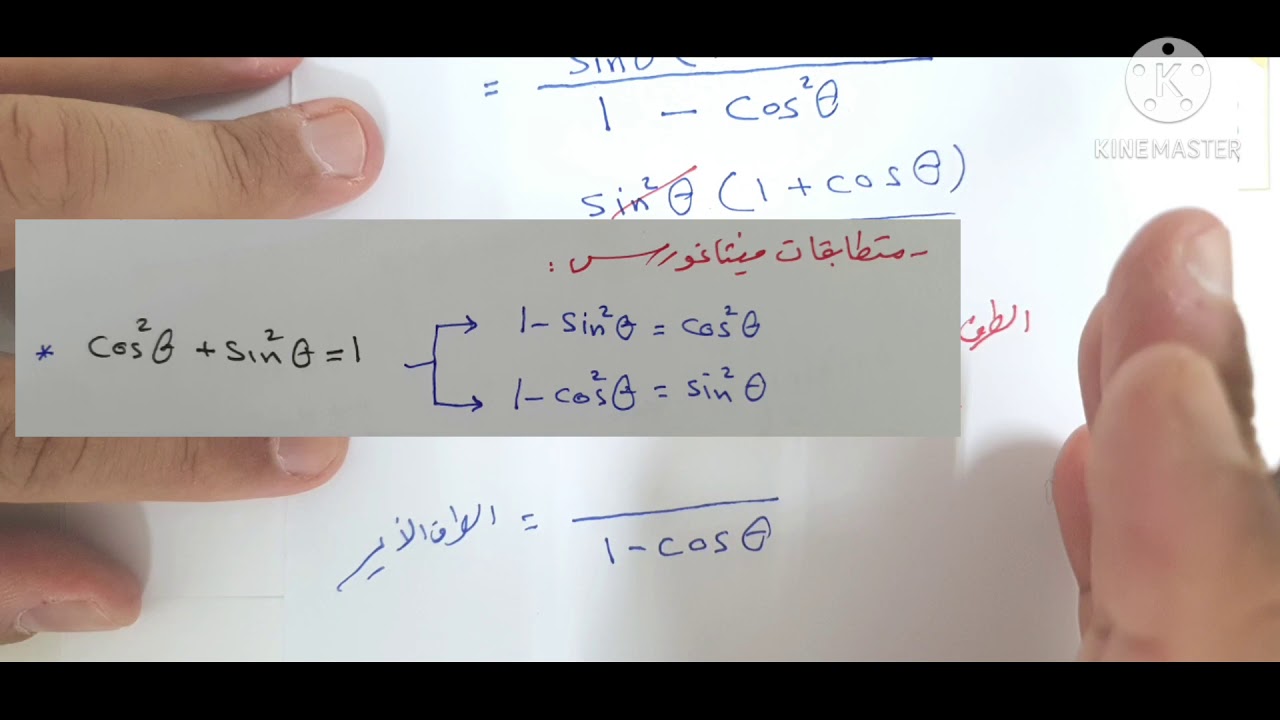 =
1 - cos²θ
K
KINEMASTER
sin²θ (1 + cos θ)
- متطابقات فيثاغورس :
* cos²θ + sin²θ = 1
1 - sin²θ = cos²θ
1 - cos²θ = sin²θ
الطرف
الطرف الأيسر =
1 - cos θ